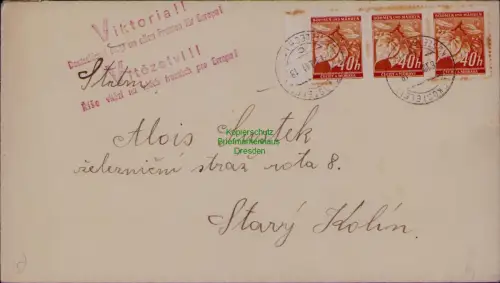 Viktoria!!
Deutschland siegt an allen Fronten für Europa!
Vítězství!!
Říše vítězí na všech frontách pro Evropu!
BÖHMEN UND MÄHREN
40h
ČECHY A MORAVA
BÖHMEN UND MÄHREN
40h
ČECHY A MORAVA
BÖHMEN UND MÄHREN
40h
ČECHY A MORAVA
Kopierschutz
Briefmarkenhaus
Dresden
Alois
železniční straž rota 8.
Starý Kolín.